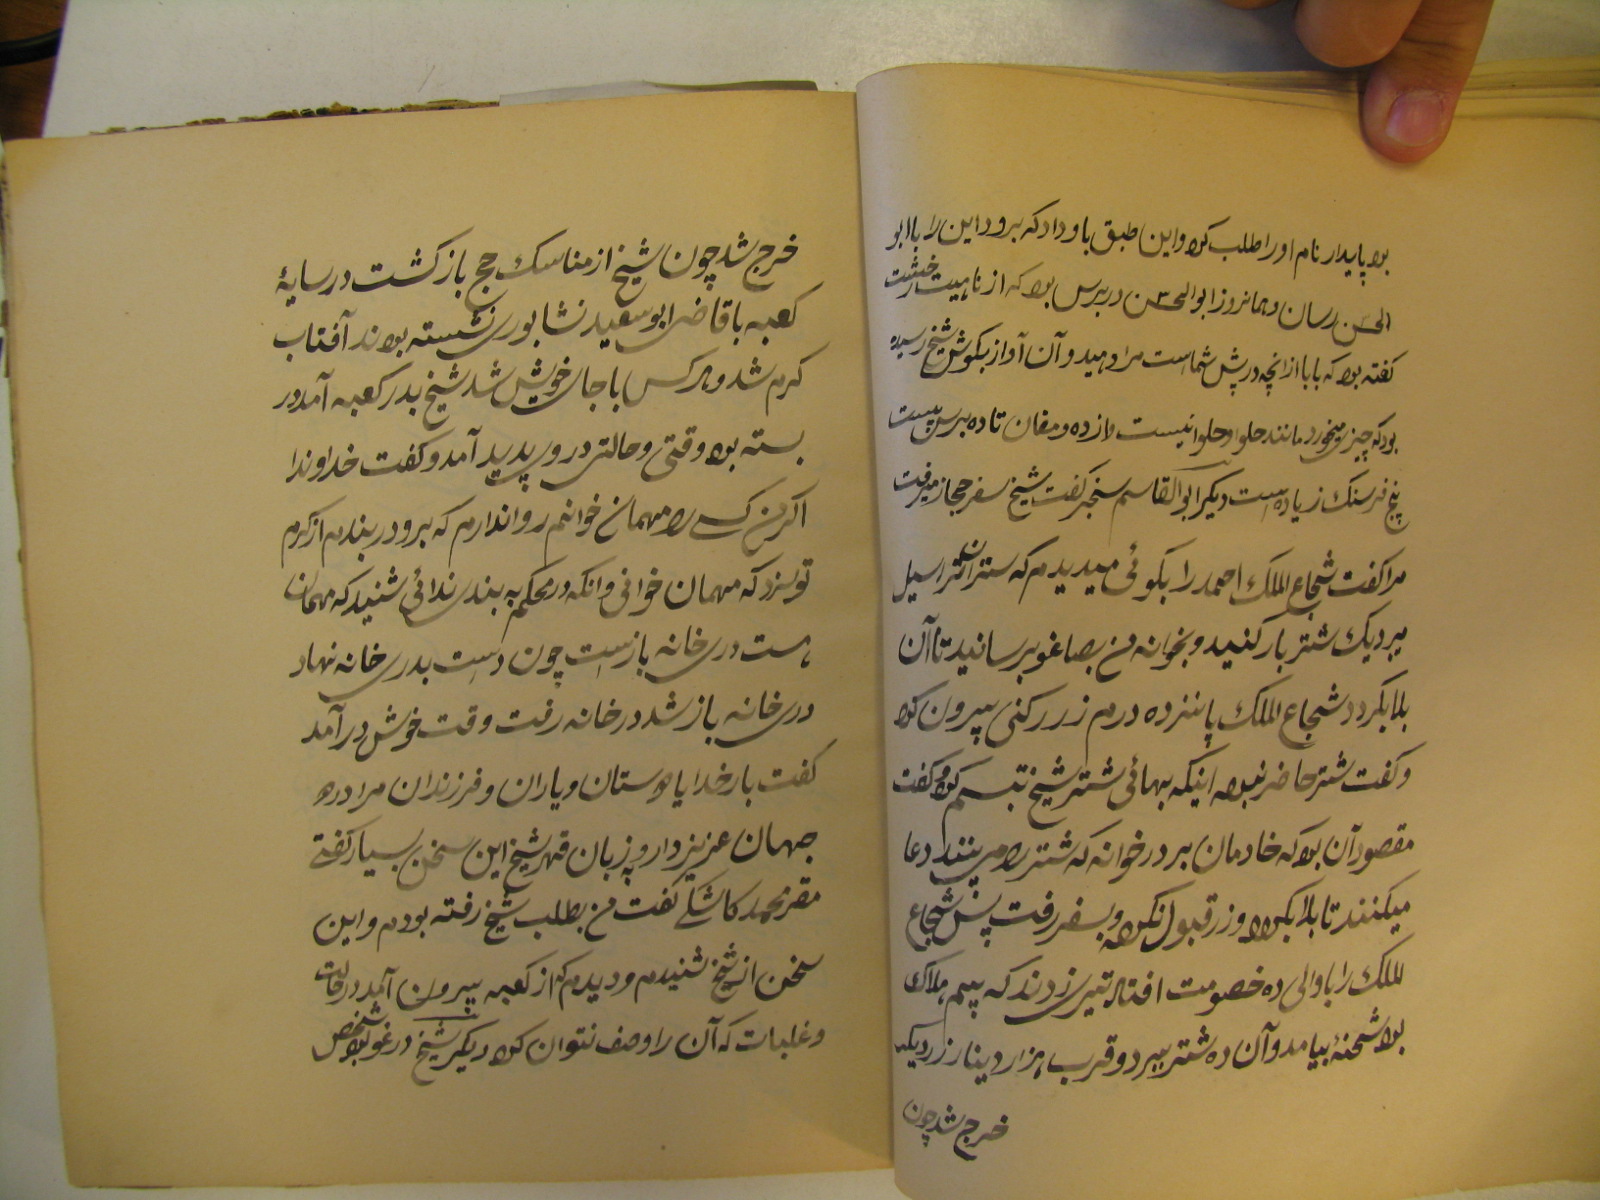 بود پایدار نام او را طلب کرد و این طبق باو داد که برو و این را با ابو
الحسن رسان و همانروز ابوالحسن در برس بود که از ناهیت رخست
کفته بود که بابا از انچه در پیش شماست مرا دهید و آن آواز بکوش شیخ رسیده
بود که چیزی میخورد مانند حلوا و حلوا نیست و از ده ومغان تا ده برس بیست
پنج فرسنک زیاده است دیکر ابوالقاسم سنجر کفت شیخ سفر حجاز میرفت
مرا کفت شجاع الملک احمد را بکوئی میدیدم که شتران ترا سیل
ببرد یک شتر بار کنید و بخوانه من بصاغو برسانید تا آن
بلا بکردد شجاع الملک پانزده درم زر رکنی بیرون کرد
و کفت شتر حاضر نبود اینکه بهائی شتر شیخ تبسم کرد و کفت
مقصود آن بود که خادمان بر در خوانه که شتر را می بینند دعا
میکنند تا بلا بکردد و زر قبول نکرد و بسفر رفت پس شجاع
الملک را با والی ده خصومت افتاد تیری زدند که بیم هلاک
بود شحنهٔ بیامد و آن ده شتر ببرد و قرب هزار دینار زر دیکر
خرج شد چون
خرج شد چون شیخ از مناسک حج باز کشت در سایهٔ
کعبه با قاضی ابو سعید نشابوری نشسته بودند آفتاب
کرم شد و هر کس با جای خویش شد شیخ بدر کعبه آمد در
بسته بود وقتی و حالتی در وی پدید آمد و کفت خداوندا
اکر من کسی را مهمان خوانم روا ندارم که برو در بندم از کرم
تو سزد که مهمان خوانی وانکه در محکم به بندی ندائی شنید که مهمان
هست دری خانه باز است چون دست بدری خانه نهاد
دری خانه باز شد در خانه رفت وقت خوش در آمد
کفت بار خدایا دوستان و یاران و فرزندان مرا در
جهان عزیز دار و به زبان قهر شیخ این سخن بسیار کفتی
مقر محمد کاشکی کفت من بطلب شیخ رفته بودم و این
سخن از شیخ شنیدم و دیدم که از کعبه بیرون آمد در حالت
و غلبات که آن را وصف نتوان کرد دیکر شیخ در غو بود شخص